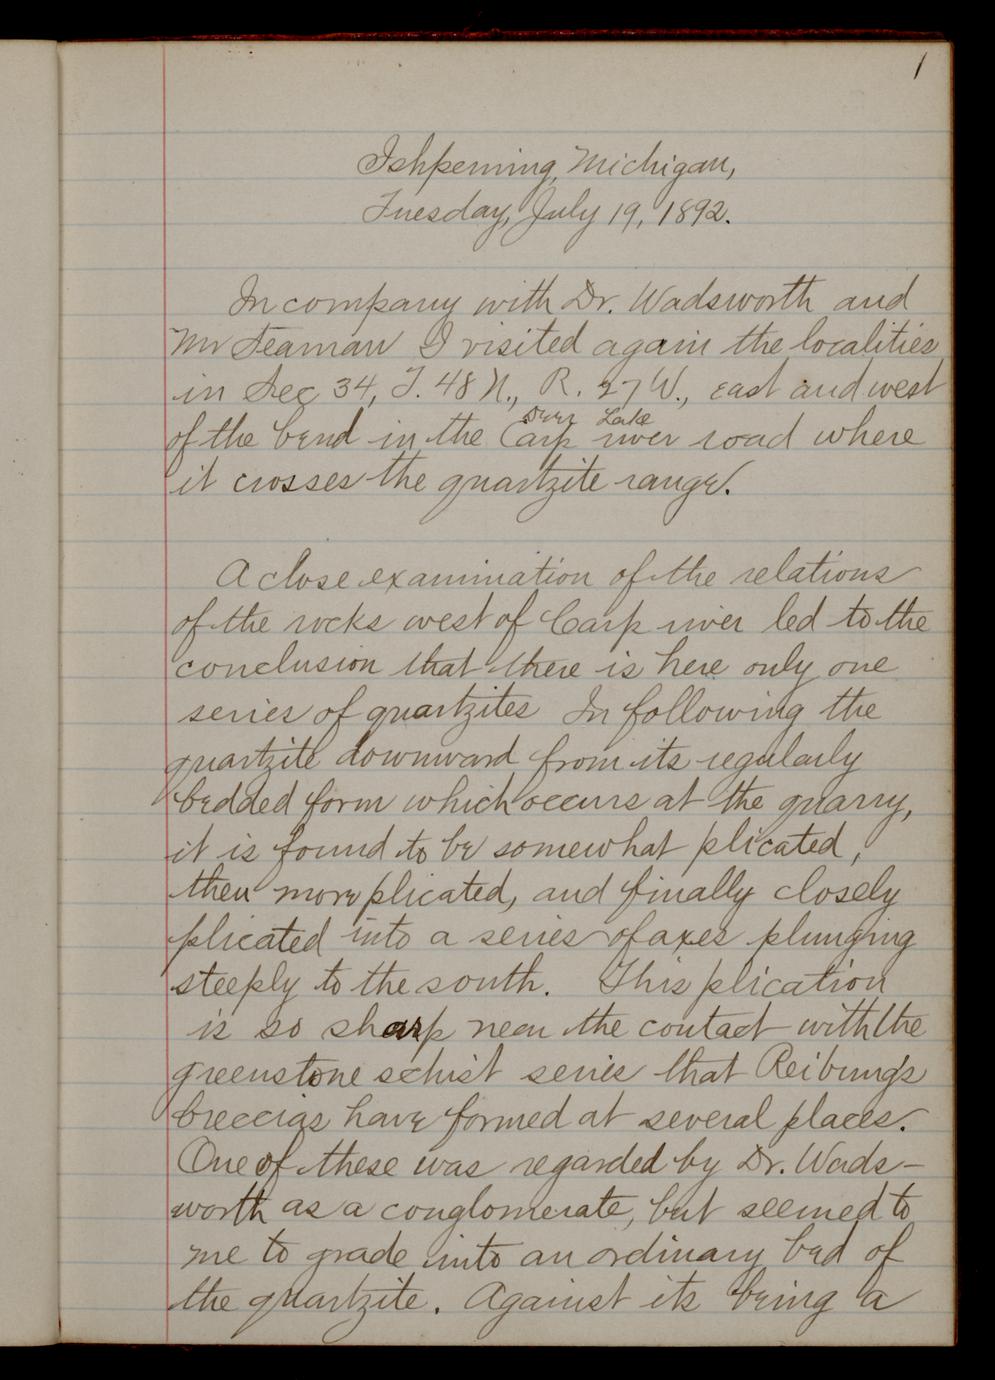 1
Ishpeming, Michigan,
Tuesday, July 19, 1892.
In company with Dr. Wadsworth and
Mr Seaman I visited again the localities
in Sec 34, T. 48 N., R. 27 W., east and west
Deer Lake
of the bend in the Carp river road where
it crosses the quartzite range.
A close examination of the relations
of the rocks west of Carp river led to the
conclusion that there is here only one
series of quartzites In following the
quartzite downward from its regularly
bedded form which occurs at the quarry,
it is found to be somewhat plicated,
then more plicated, and finally closely
plicated into a series of axes plunging
steeply to the south. This plication
is so sharp near the contact with the
greenstone schist series that Reibungs
breccias have formed at several places.
One of these was regarded by Dr. Wads-
worth as a conglomerate, but seemed to
me to grade into an ordinary bed of
the quartzite. Against its being a